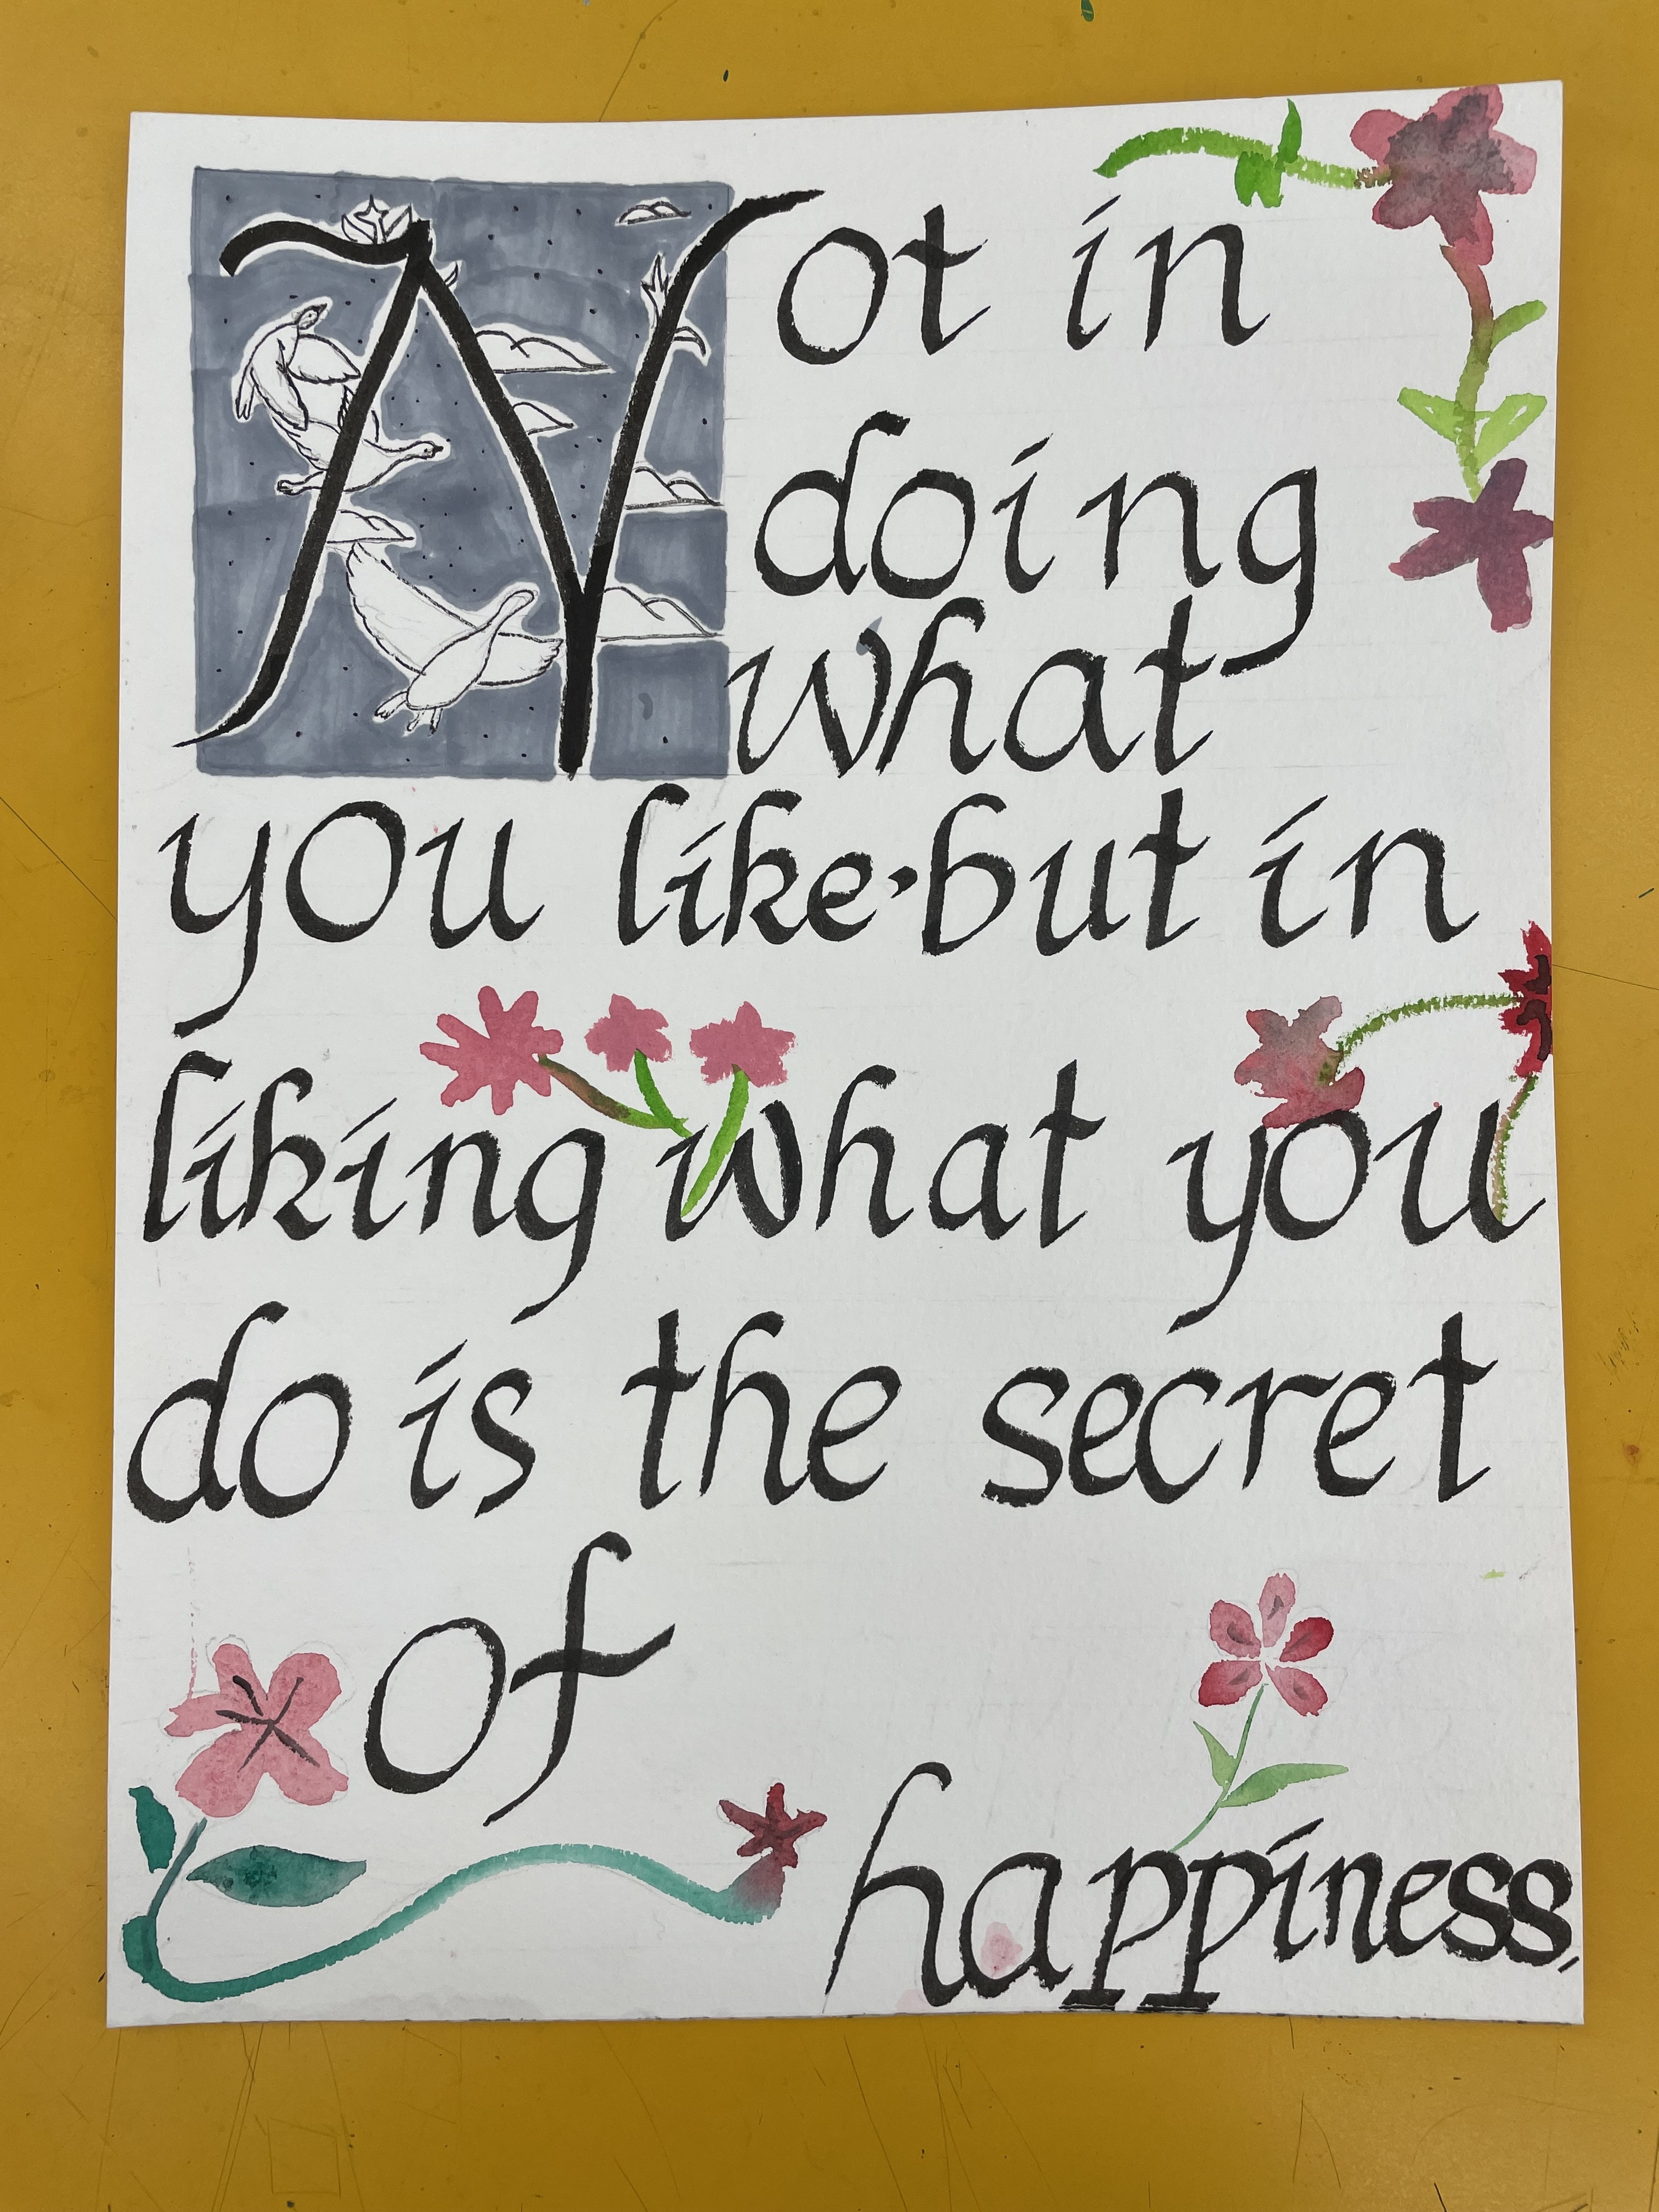 Not in
doing
what
you like·but in
liking what you
do is the secret
of
happiness.